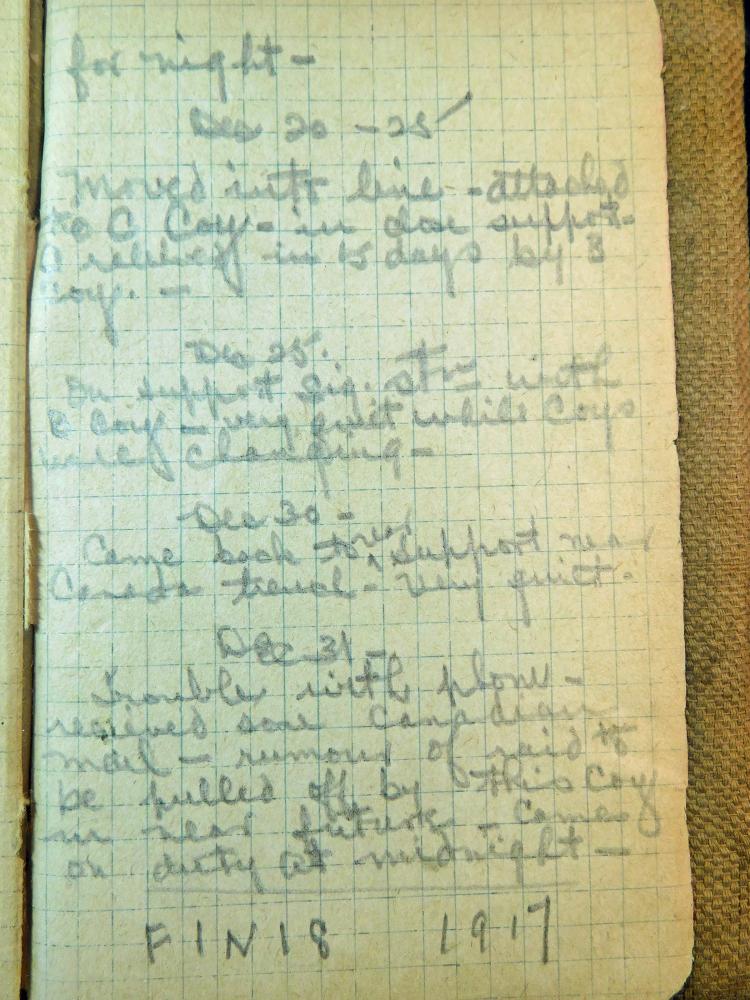 for night –
Dec 20 – 25
Moved into line – attached
to C Coy – in close support –
relieved in 5 days by B
Coy. –
Dec 25.
In support sig. stn – with
B Coy – very quiet while Coys
were changing –
Dec 30 –
Came back to res. support near
Canada trench – very quiet.
Dec 31 –
Trouble with phone –
recieved some Canadian
mail – rumour of raid to
be pulled off by this Coy
in near future – Comes
on duty at midnight –
FINIS 1917